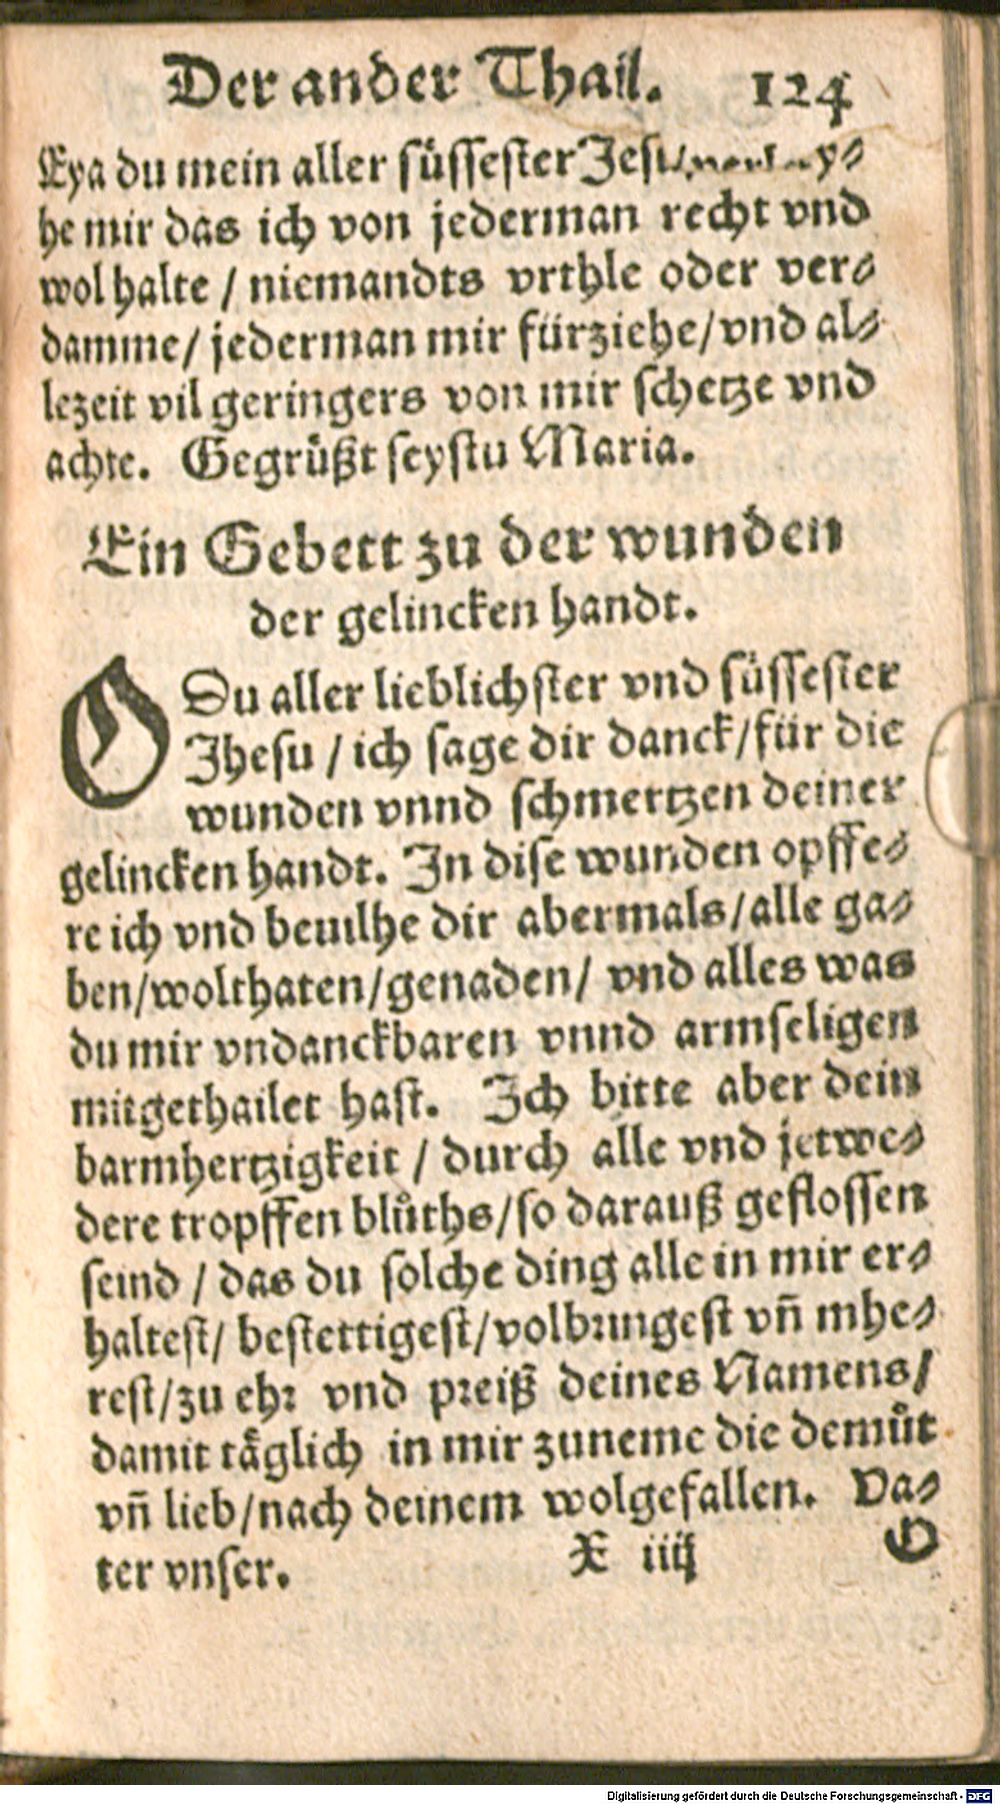 Der ander Thail. 124
Eya du mein aller süssester Jesu
he mir das ich von jederman recht vnd
wol halte / niemandts vrthle oder ver⸗
damme/ jederman mir fürziehe/vnd al⸗
lezeit vil geringers von mir schetze vnd
achte. Gegrüßt seystu Maria.
Ein Gebett zu der wunden
der gelincken handt.
O Du aller lieblichster vnd süssester
Jhesu / ich sage dir danck/für die
wunden vnnd schmertzen deiner
gelincken handt. In dise wunden opffe⸗
re ich vnd beuilhe dir abermals/alle ga⸗
ben/wolthaten/genaden/ vnd alles was
du mir vndanckbaren vnnd armseligen
mitgethailet hast. Ich bitte aber dein
barmhertzigkeit / durch alle vnd jetwe⸗
dere tropffen blůths/so darauß geflossen
seind / das du solche ding alle in mir er⸗
haltest/ bestettigest/volbringest vñ mhe⸗
rest/zu ehr vnd preiß deines Namens/
damit täglich in mir zuneme die demůt
vñ lieb/nach deinem wolgefallen. Va⸗
ter vnser. X iiij O
Digitalisierung gefördert durch die Deutsche Forschungsgemeinschaft - DFG